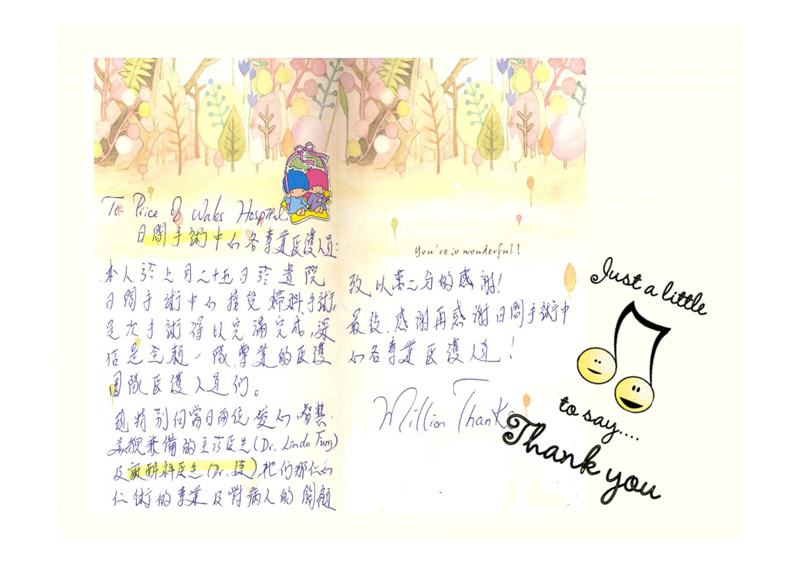 To: Price of Wales Hospital
日間手術中心各專業醫護人員:
本人於七月二十五日於貴院
日間手術中心接受婦科手術,
是次手術得以完滿完成,深
信是全賴一隊專業的醫護
團隊醫護人員們。
特別向當日兩位愛心、智慧、
兼備的主診醫生(Dr. Linda Fung)
及麻醉科醫生(Dr. 錢),他們那仁心
仁術的專業及對病人的關顧
You're so wonderful!
致以萬二分的感謝!
最後,感謝再感謝日間手術中
心各專業醫護人員!
Million Thanks
Just a little
to say....
Thank you